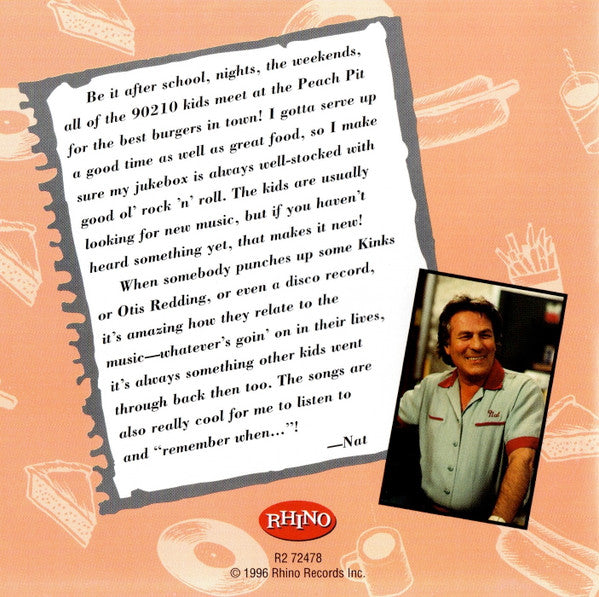 Be it after school, nights, the weekends,
all of the 90210 kids meet at the Peach Pit
for the best burgers in town! I gotta serve up
a good time as well as great food, so I make
sure my jukebox is always well-stocked with
good ol’ rock ’n’ roll. The kids are usually
looking for new music, but if you haven’t
heard something yet, that makes it new!
When somebody punches up some Kinks
or Otis Redding, or even a disco record,
it’s amazing how they relate to the
music—whatever’s goin’ on in their lives,
it’s always something other kids went
through back then too. The songs are
also really cool for me to listen to
and “remember when…”!
—Nat
Nat
RHINO
R2 72478
© 1996 Rhino Records Inc.